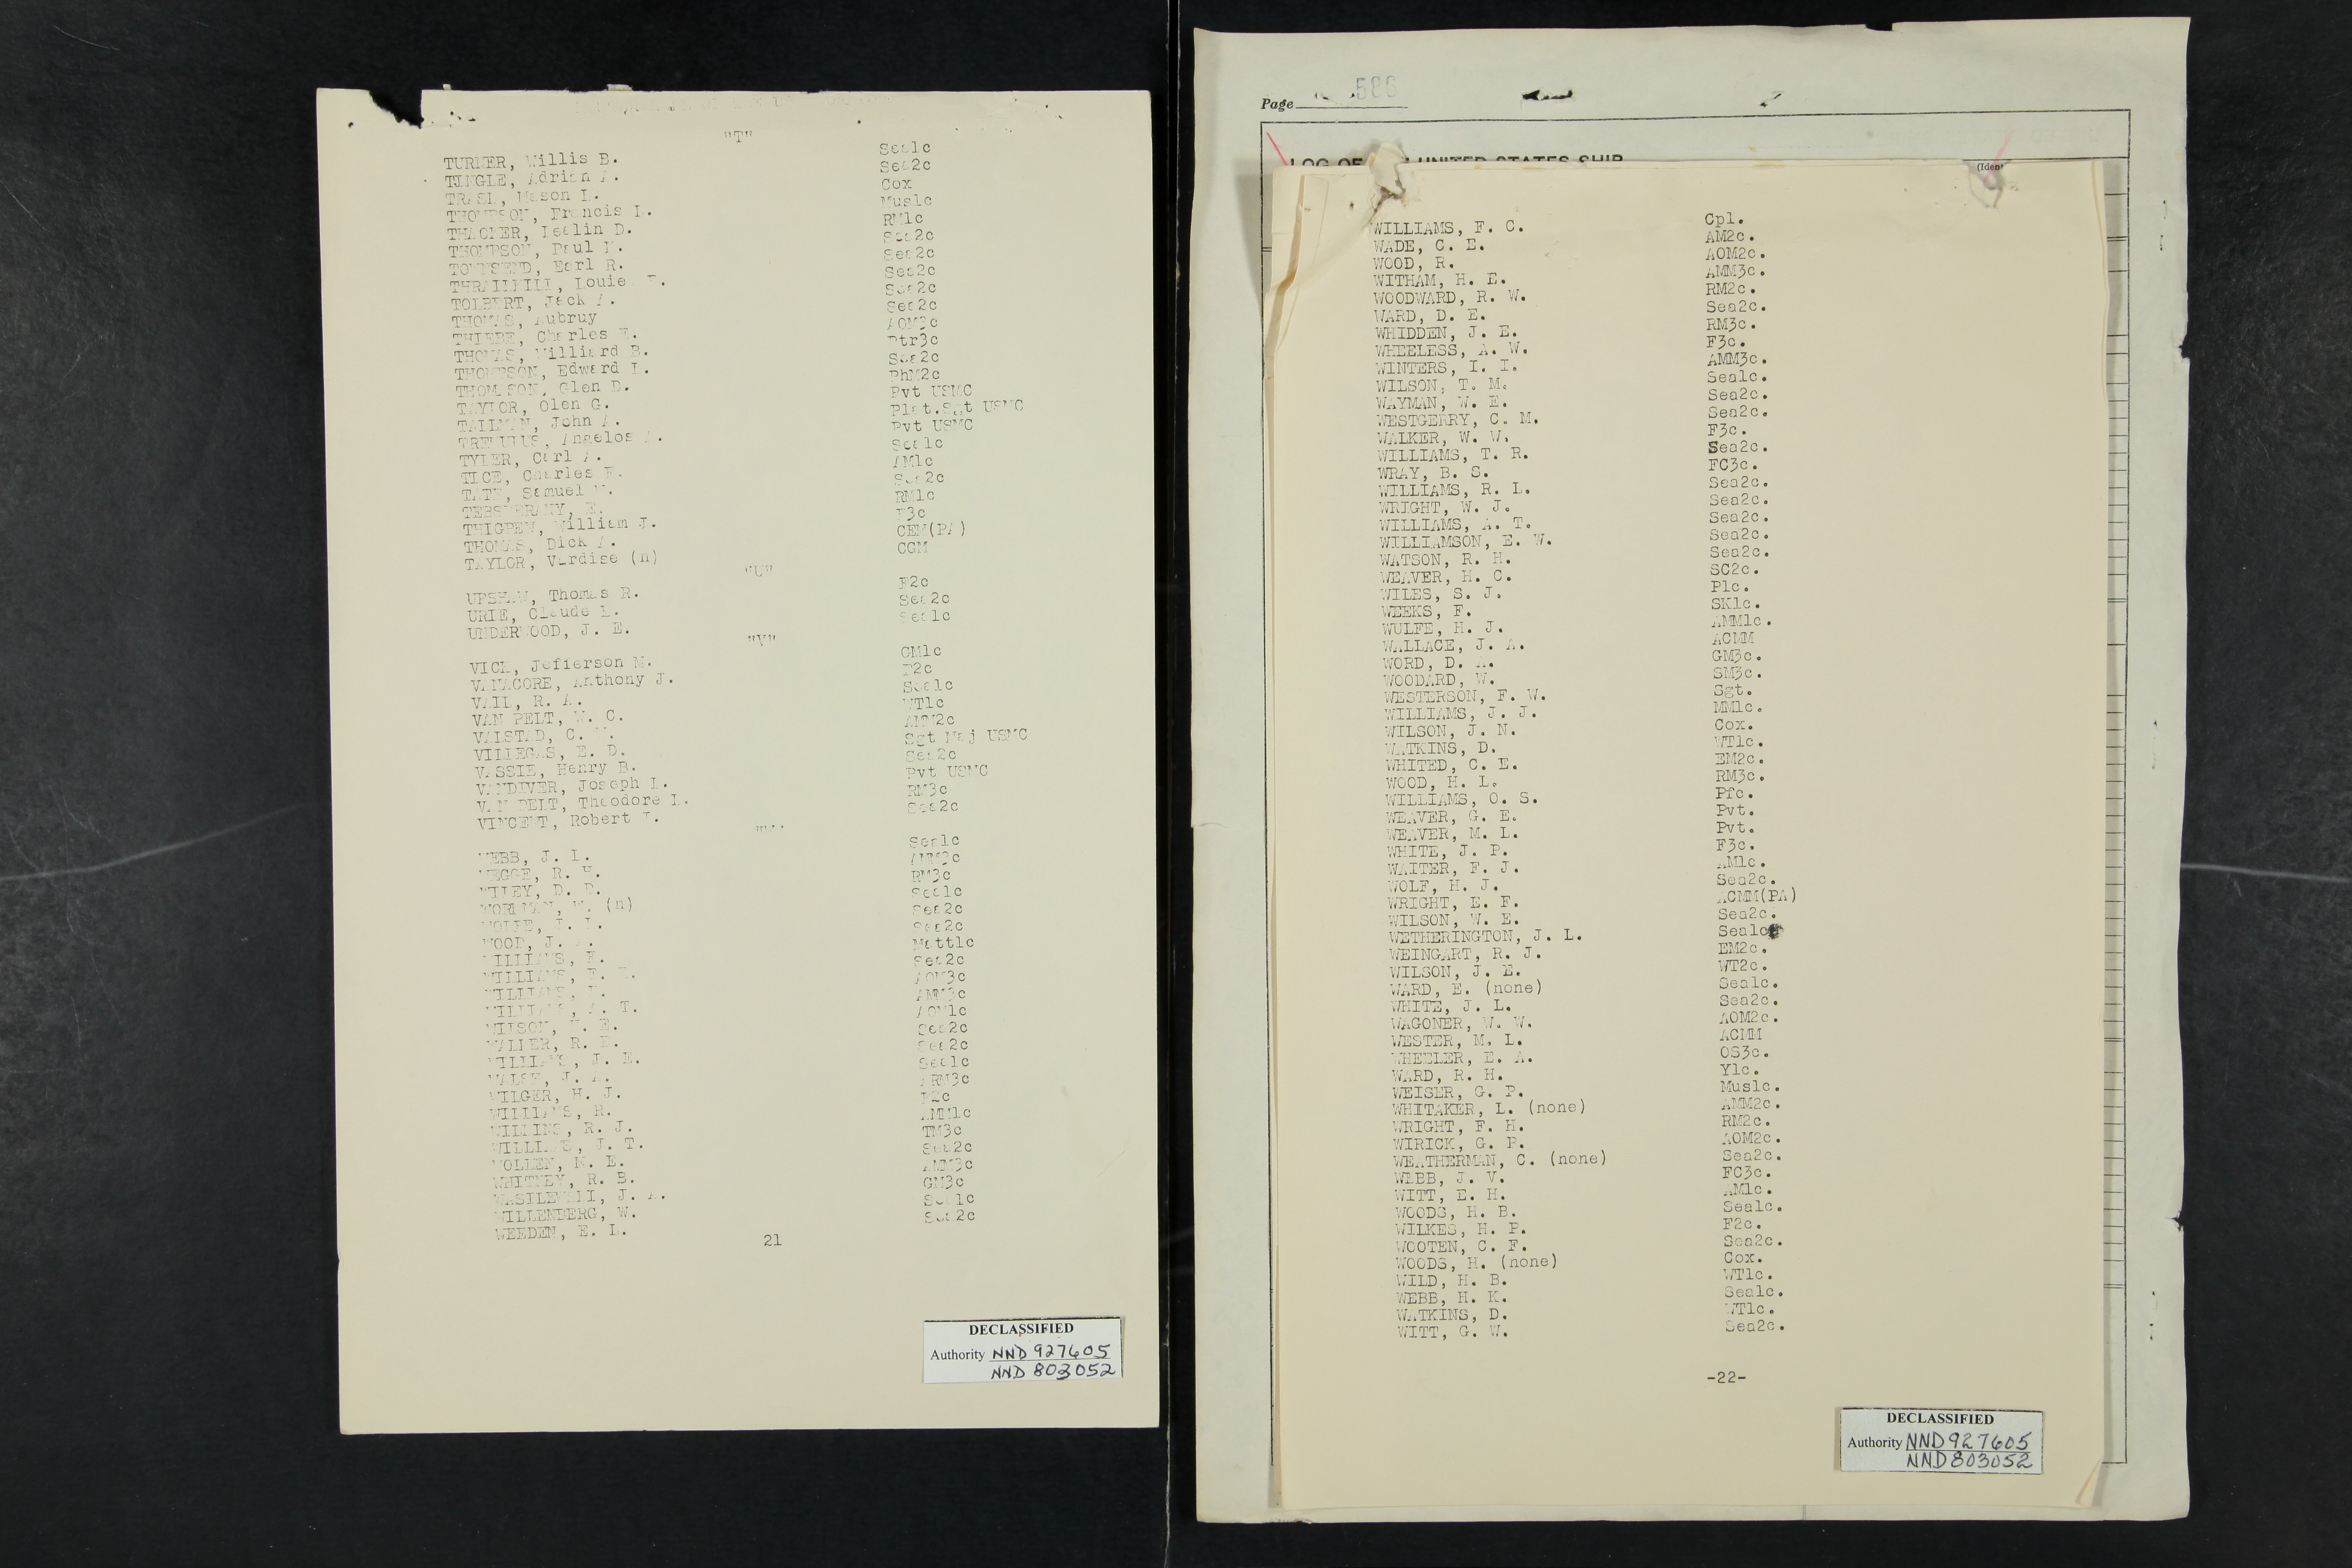 "T"
TURNER, Willis B. Sea1c
TINGLE, Adrian A. Sea2c
TRASK, Mason L. Cox
THOMPSON, Francis I. Mus1c
THACKER, Leslin D. RM1c
THOMPSON, Paul Sea2c
TOWNSEND, Earl R. Sea2c
THRAILKILL, Louie Sea2c
TOLBERT, Jack A. Sea2c
THOMAS, Aubruy Sea2c
THIEBE, Charles E. AOM3c
THOMAS, Williard B. Ptr3c
THOMPSON, Edward L. Sea2c
THOMPSON, Glen D. PhM2c
TAYLOR, Olen G. Pvt USMC
TALLMAN, John A. Plat.Sgt USMC
TREMULUS, Angelos A. Pvt USMC
TYLER, Carl A. Sea1c
TICE, Charles E. AM1c
TATE, Samuel Sea2c
E. RM1c
THIGPEN, William J. F3c
THOMAS, Dick A. CEM(PA)
TAYLOR, Vardise (n) CGM
"U"
UPSHAW, Thomas R. F2c
URIE, Claude L. Sea2c
UNDERWOOD, J. E. Sea1c
"V"
VICK, Jefferson M. GM1c
VANACORE, Anthony J. F2c
VAIL, R. A. Sea1c
VAN PELT, W. C. WT1c
VALSTAD, C. AMM2c
VILLEGAS, E. D. Sgt Maj USMC
VASSIE, Henry B. Sea2c
VANDIVER, Joseph L. Pvt USMC
VAN PELT, Theodore L. RM3c
VINCENT, Robert Sea2c
"W"
WEBB, J. L. Sea1c
WEGGE, R. AMM3c
WILEY, D. RM3c
WORKMAN, W. (n) Sea1c
WOLFE, L. Sea2c
WOOD, J. Sea2c
WILLIAMS, F. Matt1c
WILLIAMS, Sea2c
WILLIAMS, AOM3c
WILLIAMS, A. T. AMM3c
WILSON, E. AOM1c
WALLER, R. Sea2c
WILLIAMS, J. E. Sea2c
WALSH, J. A. Sea1c
WILGER, H. J. ARM3c
WILLIAMS, R. F2c
WILLINS, R. J. AMM1c
WILLIAMS, J. T. TM3c
WOLLEN, M. E. Sea2c
WHITNEY, R. B. AMM3c
WASILEWSKI, J. A. GM3c
WILLENBERG, W. Sea1c
WEEDEN, E. L. Sea2c
21
DECLASSIFIED
Authority NND 927605
NND 803052
Page 586
LOG OF UNITED STATES SHIP
(Iden
WILLIAMS, F. C. Cpl.
WADE, C. E. AM2c.
WOOD, R. AOM2c.
WITHAM, H. E. AMM3c.
WOODWARD, R. W. RM2c.
WARD, D. E. Sea2c.
WHIDDEN, J. E. RM3c.
WHEELESS, A. W. F3c.
WINTERS, I. I. AMM3c.
WILSON, T. M. Sea1c.
WAYMAN, W. E. Sea2c.
WESTGERRY, C. M. Sea2c.
WALKER, W. W. F3c.
WILLIAMS, T. R. Sea2c.
WRAY, B. S. FC3c.
WILLIAMS, R. L. Sea2c.
WRIGHT, W. J. Sea2c.
WILLIAMS, A. T. Sea2c.
WILLIAMSON, E. W. Sea2c.
WATSON, R. H. Sea2c.
WEAVER, H. C. SC2c.
WILES, S. J. P1c.
WEEKS, F. SK1c.
WULFE, H. J. AMM1c.
WALLACE, J. A. ACMM
WORD, D. A. GM3c.
WOODARD, W. SM3c.
WESTERSON, F. W. Sgt.
WILLIAMS, J. J. MM1c.
WILSON, J. N. Cox.
WATKINS, D. WT1c.
WHITED, C. E. EM2c.
WOOD, H. L. RM3c.
WILLIAMS, O. S. Pfc.
WEAVER, G. E. Pvt.
WEAVER, M. L. Pvt.
WHITE, J. P. F3c.
WAITER, F. J. AM1c.
WOLF, H. J. Sea2c.
WRIGHT, E. F. ACMM(PA)
WILSON, W. E. Sea2c.
WETHERINGTON, J. L. Sea1c
WEINGART, R. J. EM2c.
WILSON, J. E. WT2c.
WARD, E. (none) Sea1c.
WHITE, J. L. Sea2c.
WAGONER, W. W. AOM2c.
WESTER, M. L. ACMM
WHEELER, E. A. OS3c.
WARD, R. H. Y1c.
WEISER, G. P. Mus1c.
WHITAKER, L. (none) AMM2c.
WRIGHT, F. H. RM2c.
WIRICK, G. P. AOM2c.
WEATHERMAN, C. (none) Sea2c.
WEBB, J. V. FC3c.
WITT, E. H. AM1c.
WOODS, H. B. Sea1c.
WILKES, H. P. F2c.
WOOTEN, C. F. Sea2c.
WOODS, H. (none) Cox.
WILD, H. B. WT1c.
WEBB, H. K. Sea1c.
WATKINS, D. WT1c.
WITT, G. W. Sea2c.
-22-
DECLASSIFIED
Authority NND 927605
NND 803052